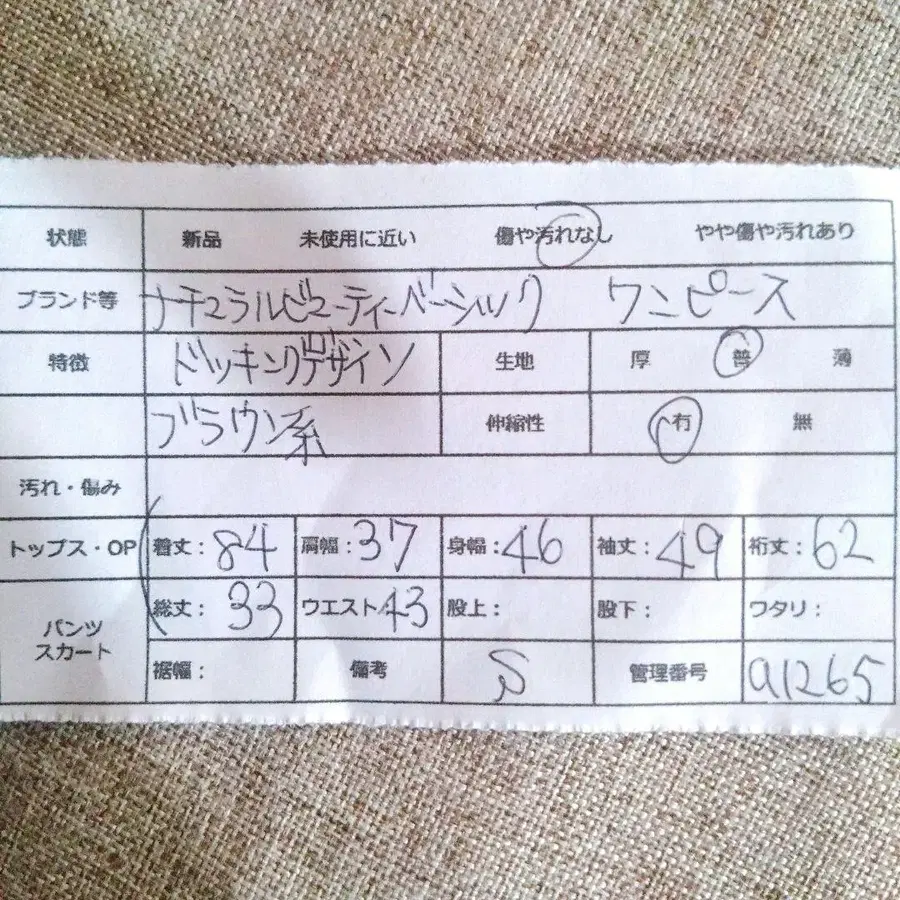 状態 新品 未使用に近い 傷や汚れなし やや傷や汚れあり
ブランド等 ナチュラルビューティーベーシック ワンピース
特徴 ドッキングデザイン 生地 厚 普 薄
ブラウン系 伸縮性 有 無
汚れ・傷み
トップス・OP 着丈：84 肩幅：37 身幅：46 袖丈：49 裄丈：62
パンツ スカート 総丈：33 ウエスト：43 股上： 股下： ワタリ：
裾幅： 備考 S 管理番号 a1265